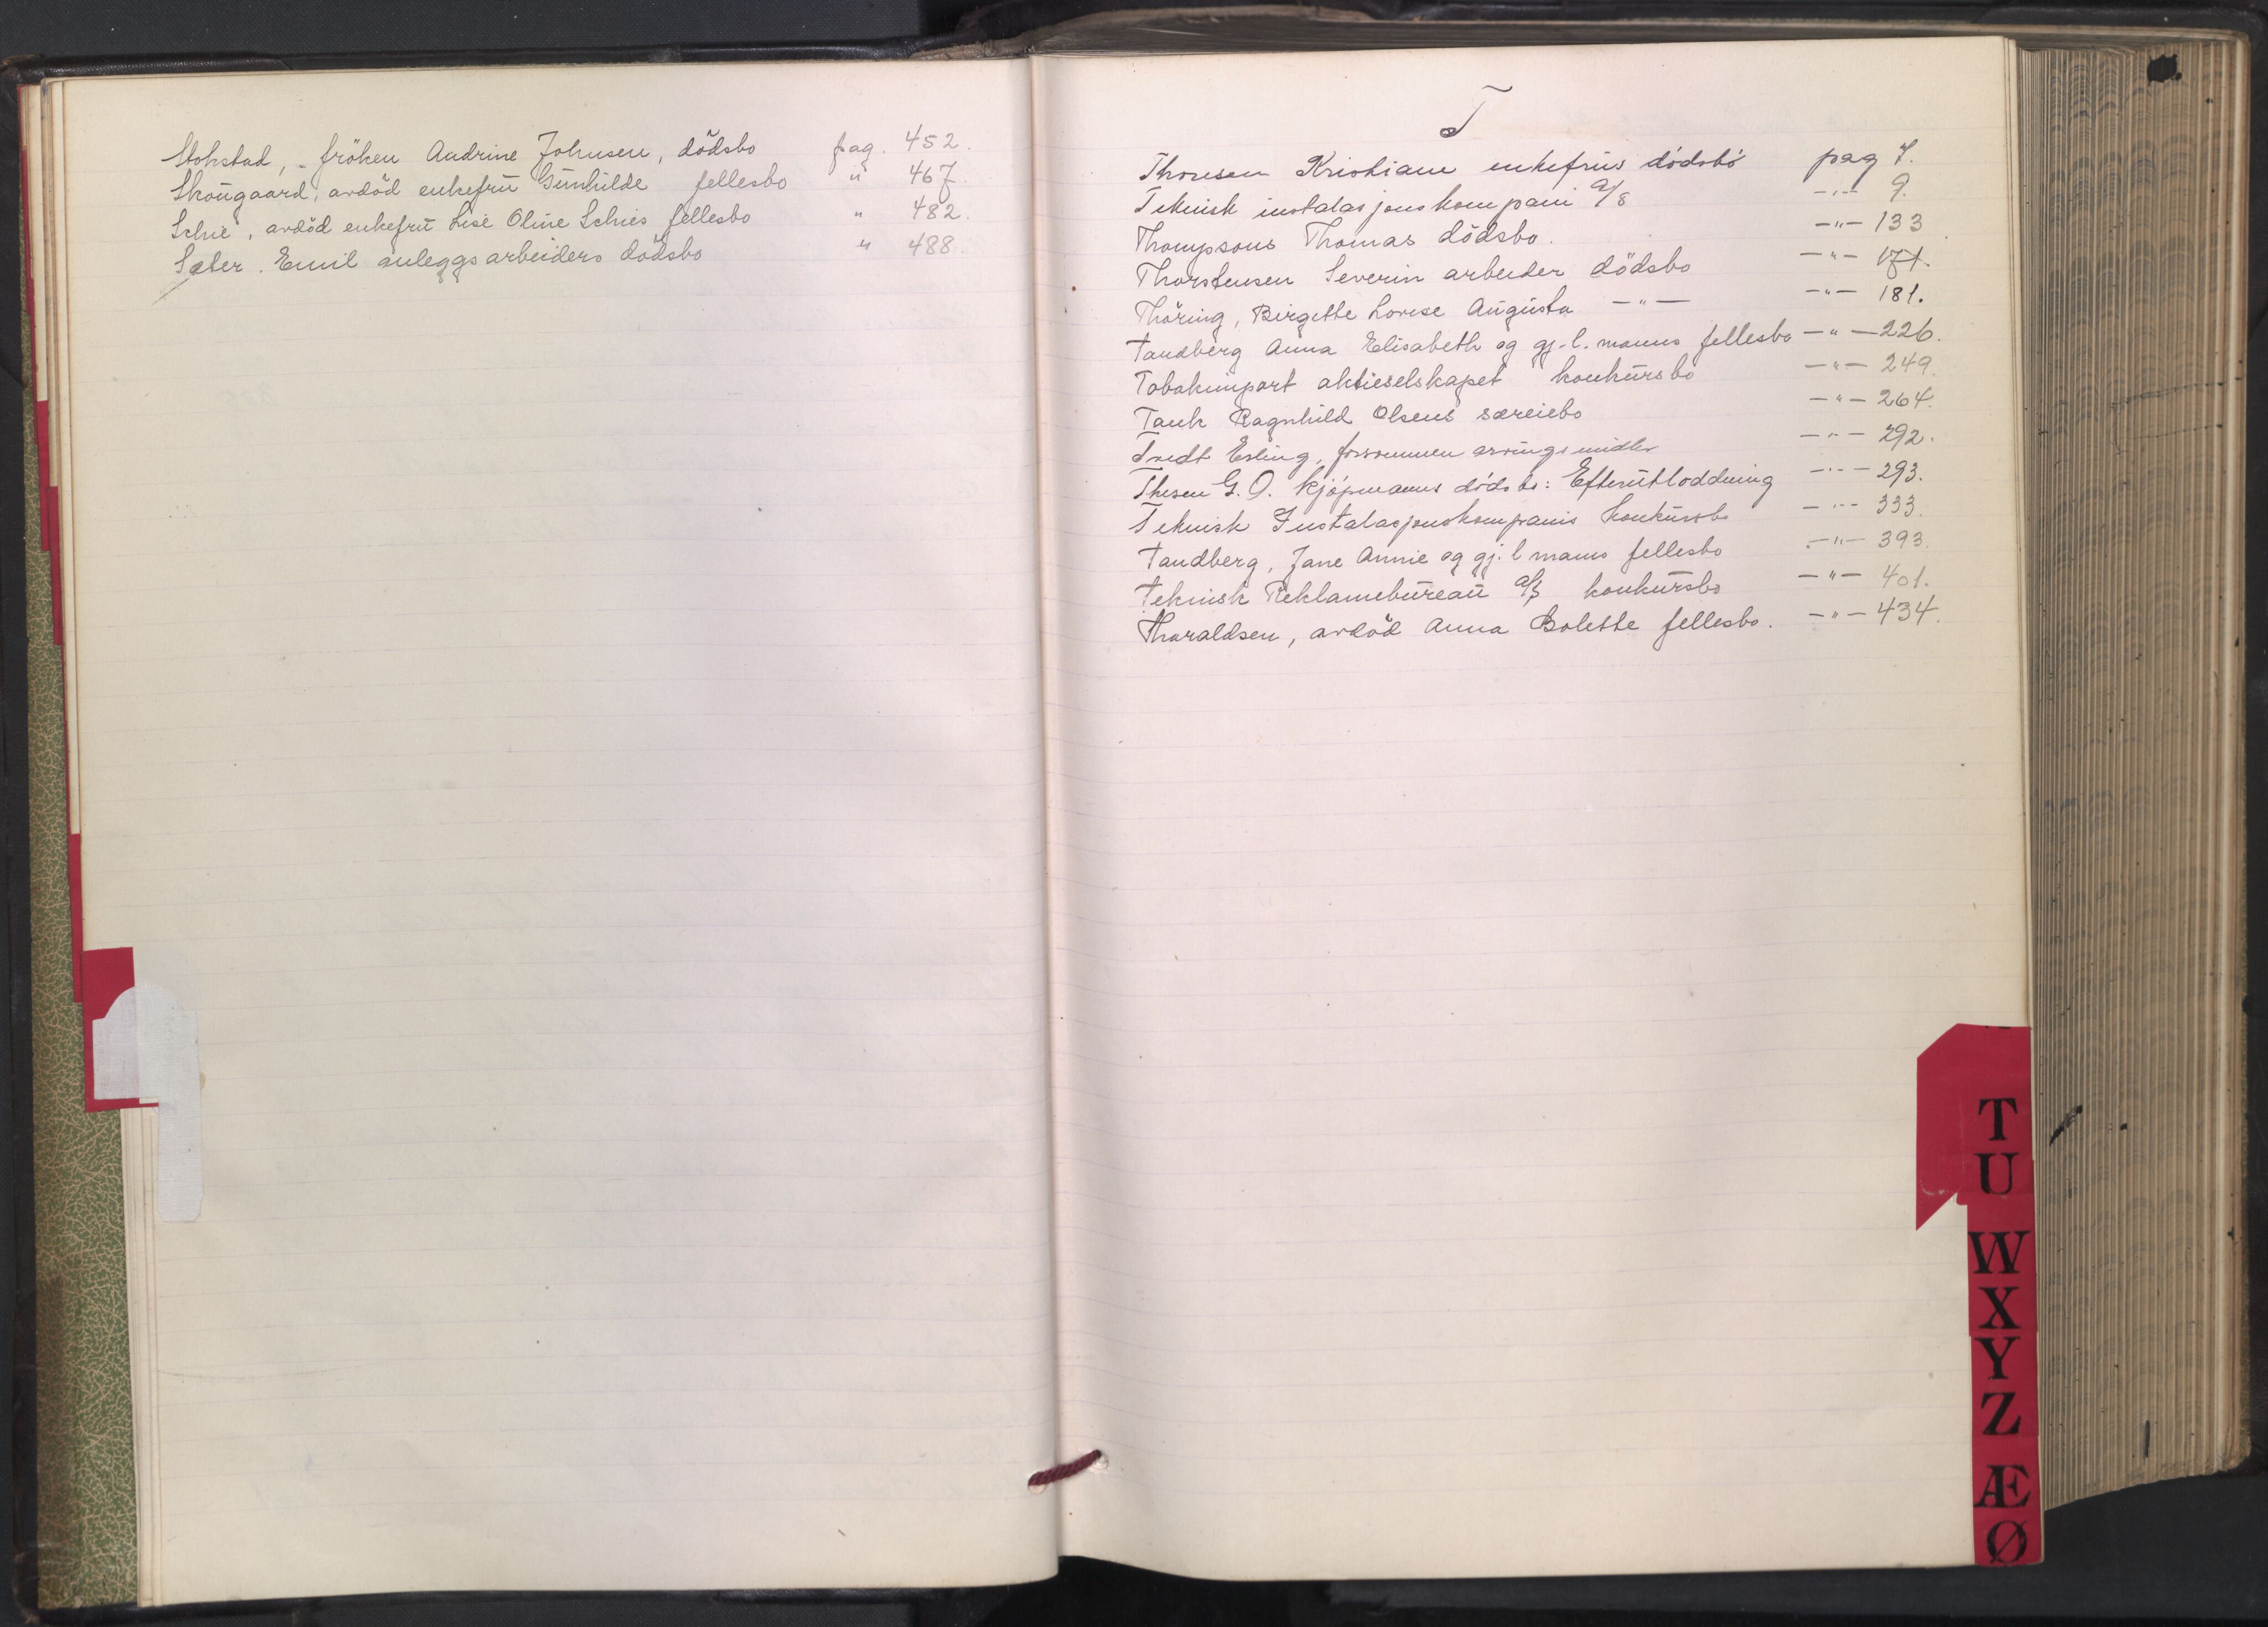 Stokstad, fröken Andrine Johnsen, dödsbo pag. 452.
Skougaard, avdöd enkefru Gunhilde fellesbo " 467
Schie, avdöd enkefru Lise Oline Schies fellesbo " 482.
Sæter. Emil anleggsarbeiders dödsbo " 488.
T
Thoresen Kristiane enkefrus dödsbo pag 7.
Teknisk instalasjonskompani A/S -"- 9.
Thompsons Thomas dödsbo. -"- 133
Thorstensen Severin arbeider dödsbo -"- 171.
Thöring, Birgitte Lovise Augusta -"- -"- 181.
Tandberg Anna Elisabeth og gj.l. manns fellesbo -"- 226.
Tobakimport aktieselskapet konkursbo -"- 249.
Tank Ragnhild Olsens særeiebo -"- 264.
Tvedt Erling, forsvunnen arvings midler -"- 292.
Thesen G. O. kjöpmanns dödsbo: Efterutloddning -"- 293.
Teknisk Instalasjonskompanis konkursbo -"- 333.
Tandberg, Jane Annie og gj. l manns fellesbo -"- 393.
Teknisk Reklamebureau A/S konkursbo -"- 401.
Tharaldsen, avdöd Anna Bolette fellesbo. -"- 434.
T
U
W
X
Y
Z
Æ
Ø